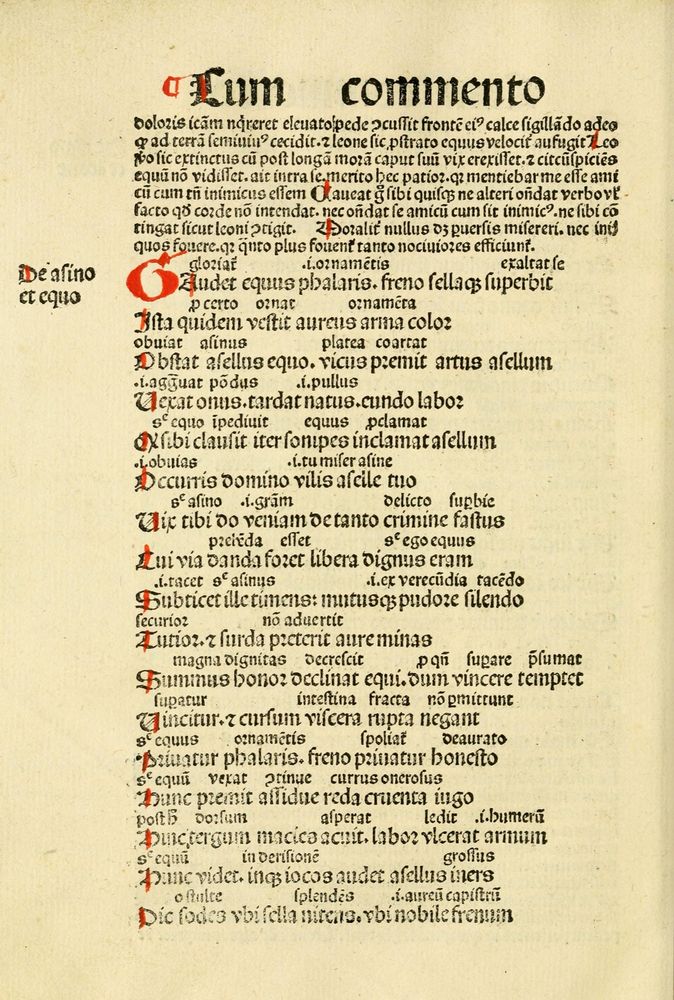 ¶ Cum commento
doloris icām nq̄reret eleuato pede ꝑcussit frontē eiꝰ calce sigillādo adeo
ꝙ ad terrā semiuiuꝰ cecidit. ⁊ leone sic ꝓstrato equus velocit̄ aufugit Leo
ꝟo sic extinctus cū post longā morā caput suū vix erexisset. ⁊ circūspiciēs
equū nō vidisset. ait intra se. merito hec patior. qꝛ mentiebar me esse ami
cū cum tn̄ inimicus essem Caueat g̊ sibi quisqꝫ ne alteri ondat verbo vl̄
facto qđ corde nō intendat. nec ondat se amicū cum sit inimicꝰ. ne sibi cō
tingat sicut leoni ꝯtigit. Moralit̄ nullus dꝫ ꝑuersis misereri. nec iniq̄
quos fouere. qꝛ q̄nto plus fouent̄ tanto nociuiores efficiunt̄.
De asino
et equo
gloriat̄ .i. ornamētis exaltat se
Gaudet equus phalaris. freno sellaqꝫ superbit
ꝓ certo ornat ornamēta
Ista quidem vestit aureus arma color
obuiat asinus platea coartat
Obstat asellus equo. vicus premit artus asellum
.i. agg̊uat pōdus .i. pullus
Uexat onus. tardat natus. eundo labor
sᶜ equo īpediuit equus ꝓclamat
Q sibi clausit iter sonipes inclamat asellum
.i. obuias .i. tu miser asine
Occurris domino vilis aselle tuo
sᶜ asino .i. grām delicto suꝑbie
Uix tibi do veniam de tanto crimine fastus
prebēda esset sᶜ ego equus
Cui via danda foret libera dignus eram
.i. tacet sᶜ asinus .i. ex verecūdia tacēdo
Subticet ille timens: mutusqꝫ pudore silendo
securior nō aduertit
Tutior. ⁊ surda preterit aure minas
magna dignitas decrescit ꝓ qn̄ suꝑare p̄sumat
Summus honor declinat equi. dum vincere temptet
suꝑatur intestina fracta nō ꝑmittunt
Uincitur. ⁊ cursum viscera rupta negant
sᶜ equus ornamētis spoliat̄ deaurato
Priuatur phalaris. freno priuatur honesto
sᶜ equū vexat ꝯtinue currus onerosus
Hunc premit assidue reda cruenta iugo
posth̄ dorsum asperat ledit .i. humerū
Hinc tergum macies acuit. labor vlcerat armum
sᶜ equū in derisionē grossus
Hunc videt. inqꝫ iocos audet asellus iners
o stulte splendēs .i. aureū capistrū
Dic sodes vbi sella nitens. vbi nobile frenum